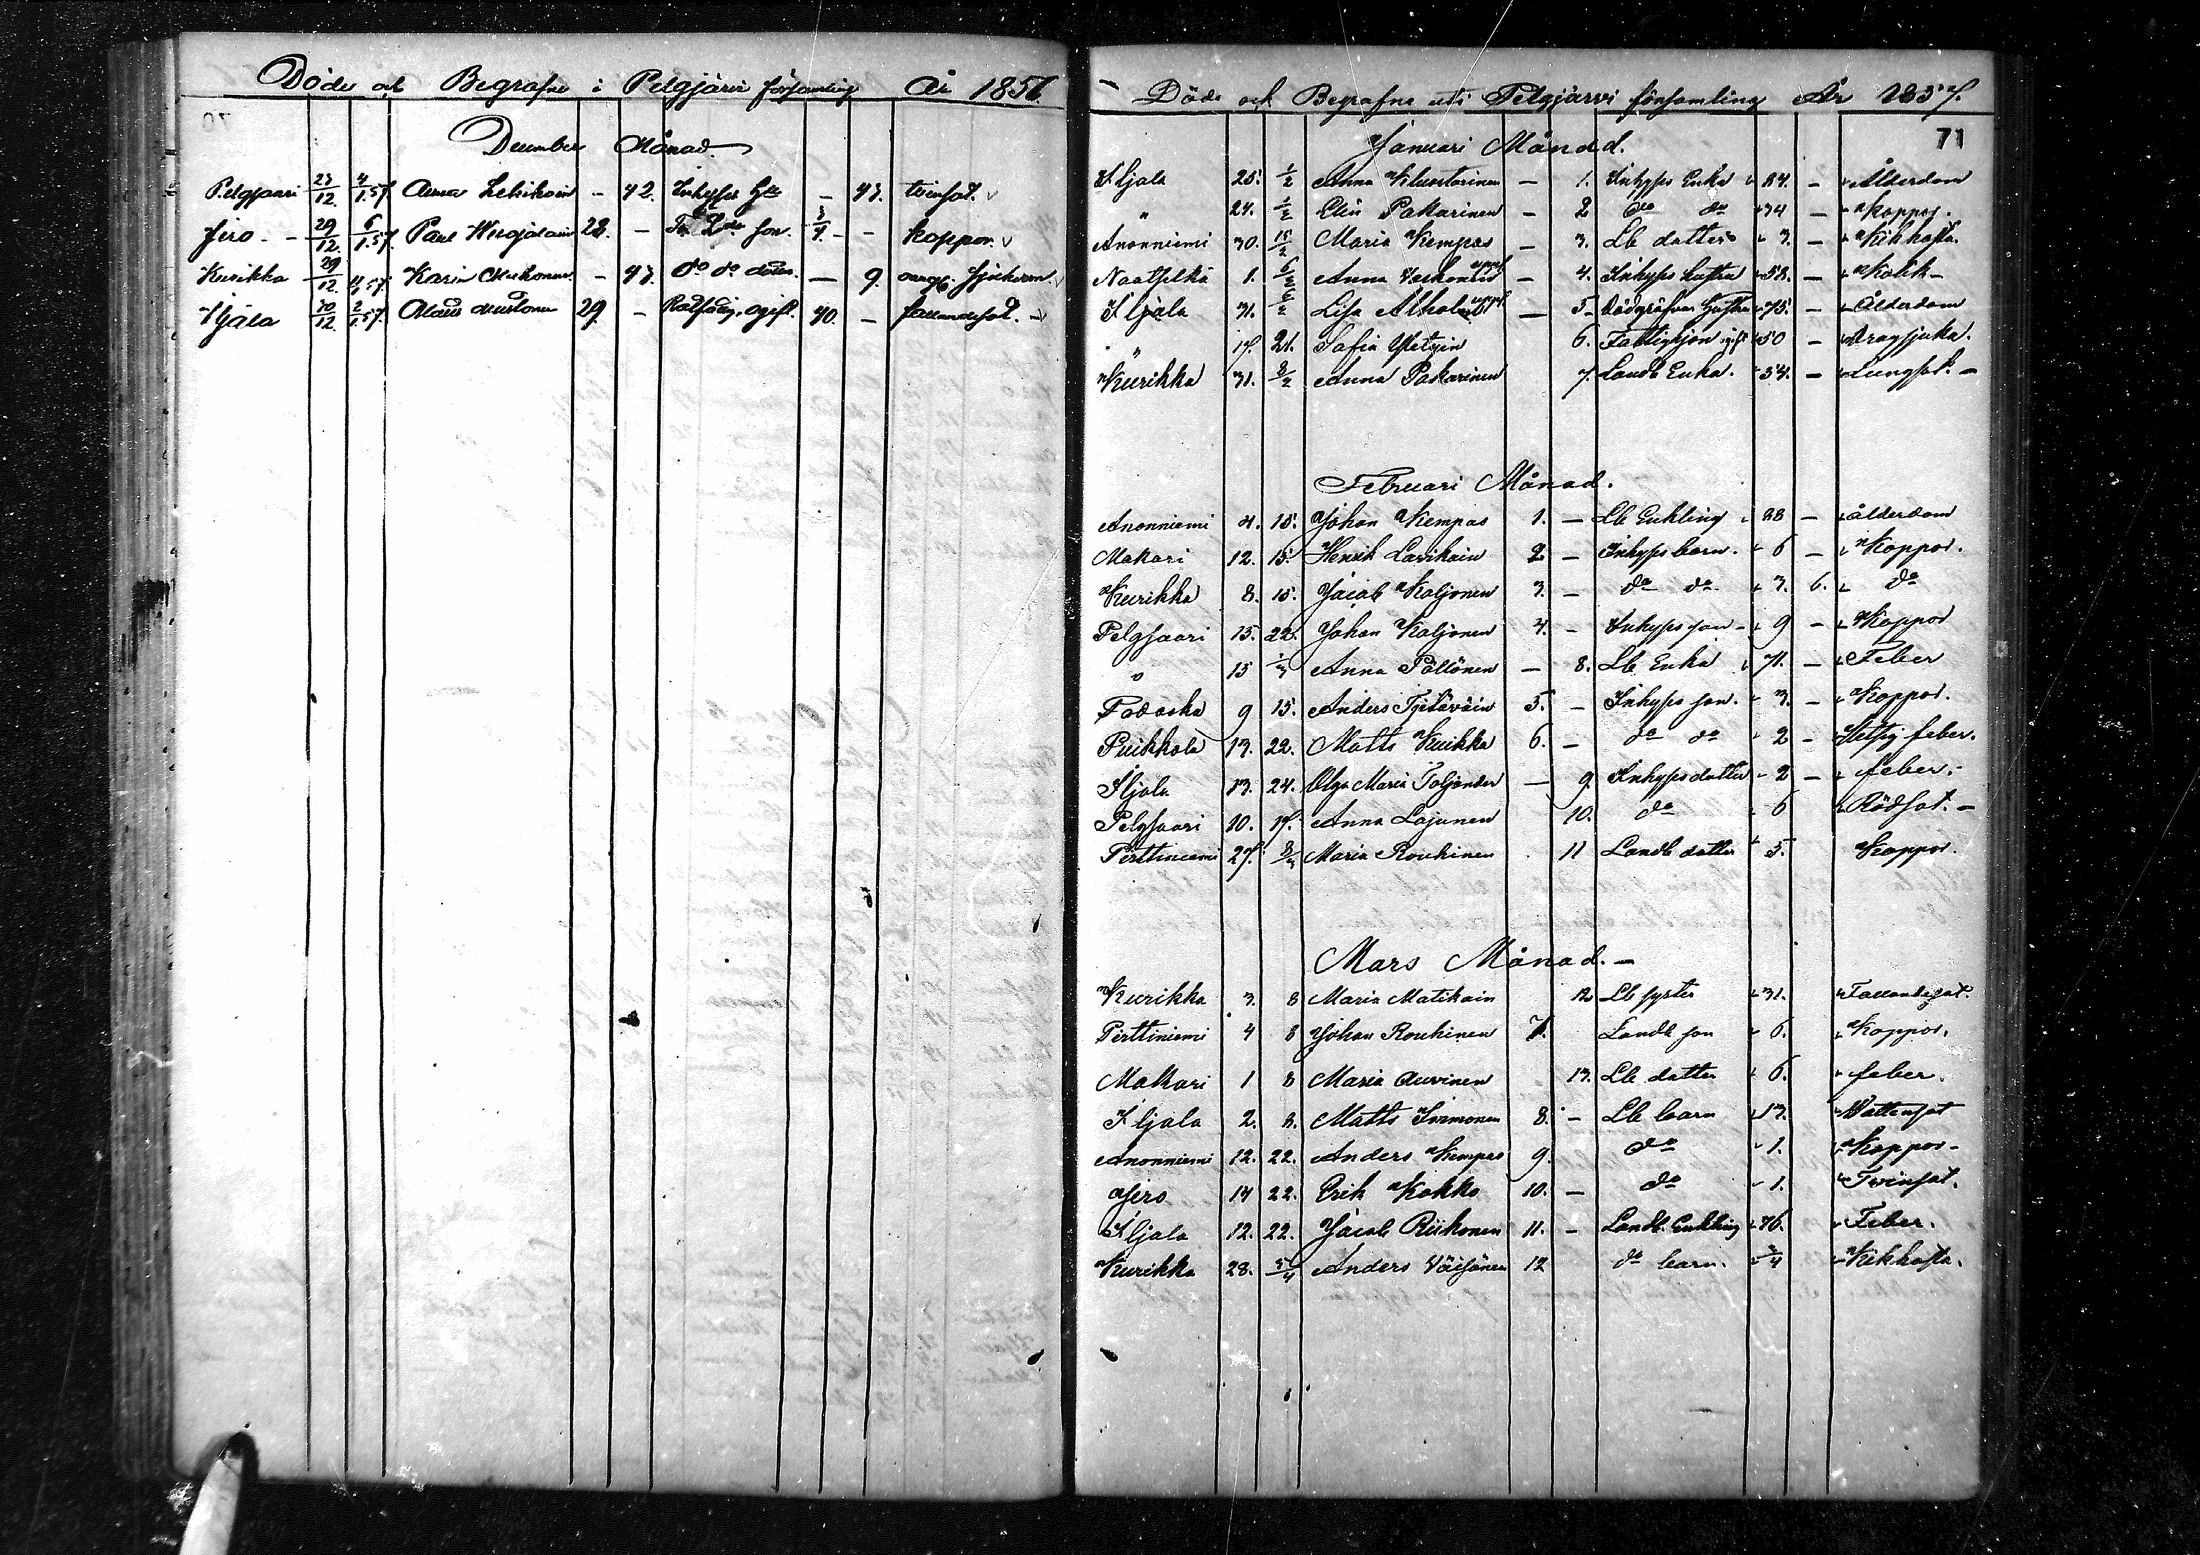 Döde och Begrafne i Pelgjärvi församling År 1856.
December Månad.
Pelgjaari 23/12. 4/1.57. Anna Lehikoin - 42. Inhyses - 43. tvinsot.
Jero - 29/12. 6/1.57. Paul 28. - son. 3/4. - - koppor.
Kurikka 29/12. 57. Karin - 43. do do dotter. - 9.
Iljala 10/12. 2/1.57. 29. - 40. - fallandesot.
Döde och Begrafne uti Pelgjärvi församling År 1857.
71
Januari Månad.
Iljala 25. 1/2 Anna - 1. Inhyses Enka 84. - Ålderdom
" 24. 1/2 Elin Pakarinen - 2 do do 34 - Koppor.
Anonniemi 30. 15/2 Maria Kempas - 3. Lb dotter 3. - Kikhosta.
1. Anna - 4. Inhyses hustru 58. - Kolik -
Iljala 31. Lisa - 5 75. - Ålderdom
" 17. 21. Sofia 6. Fattighjon 50 - Dragsjuka.
Kurikka 31. 8/2 Anna Pakarinen 7. Landb Enka. 54. - Lungsot. -
Februari Månad.
Anonniemi 4. 15. Johan Kempas 1. - Lb Enkling 88 - Ålderdom
Makari 12. 15. Henrik Lavikain 2 - Inhyses barn. 6 - Koppor.
Kurikka 8. 15. Jacob Koljonen 3. - do do 3. 6. do
Pelgjaari 15. 22. Johan Koljonen 4. - Inhyses son - 9 - Koppor
" 15 1/3 Anna Pöllönen - 8. Lb Enka 71. - Feber
9 15. Anders 5. - Inhyses son. 3. - Koppor.
Puikkola 13. 22. Matts Kuikka 6. - do do 2 - feber.
Iljala 13. 24. Olga Maria - 9. Inhyses dotter 2 - feber.
Pelgjaari 10. 17. Anna Lajunen 10. do 6 Rödsot. -
Pirttiniemi 27. 8/3 Maria Rouhinen 11 Landb dotter 5. Koppor.
Mars Månad. -
Kurikka 3. 8 Maria Matikain 12 Lb syster 31. Fallandesot.
Pirttiniemi 4 8 Johan Rouhinen 7. Landb son 6. Koppor.
Makari 1 8 Maria Auvinen 13. Lb dotter 6. feber.
Iljala 2. 8. Matts Irmonen 8. - Lb barn 13. Vattusot
Anonniemi 12. 22. Anders Kempas 9. do 1. Koppor -
Jero 14 22. Erik Kokko 10. - do 1. Tvinsot.
Iljala 12. 22. Jacob Riikonen 11. - Landb. Enkling 76. Feber.
Kurikka 28. 5/4 Anders Väisänen 12 do barn. 3/4 Kikhosta.